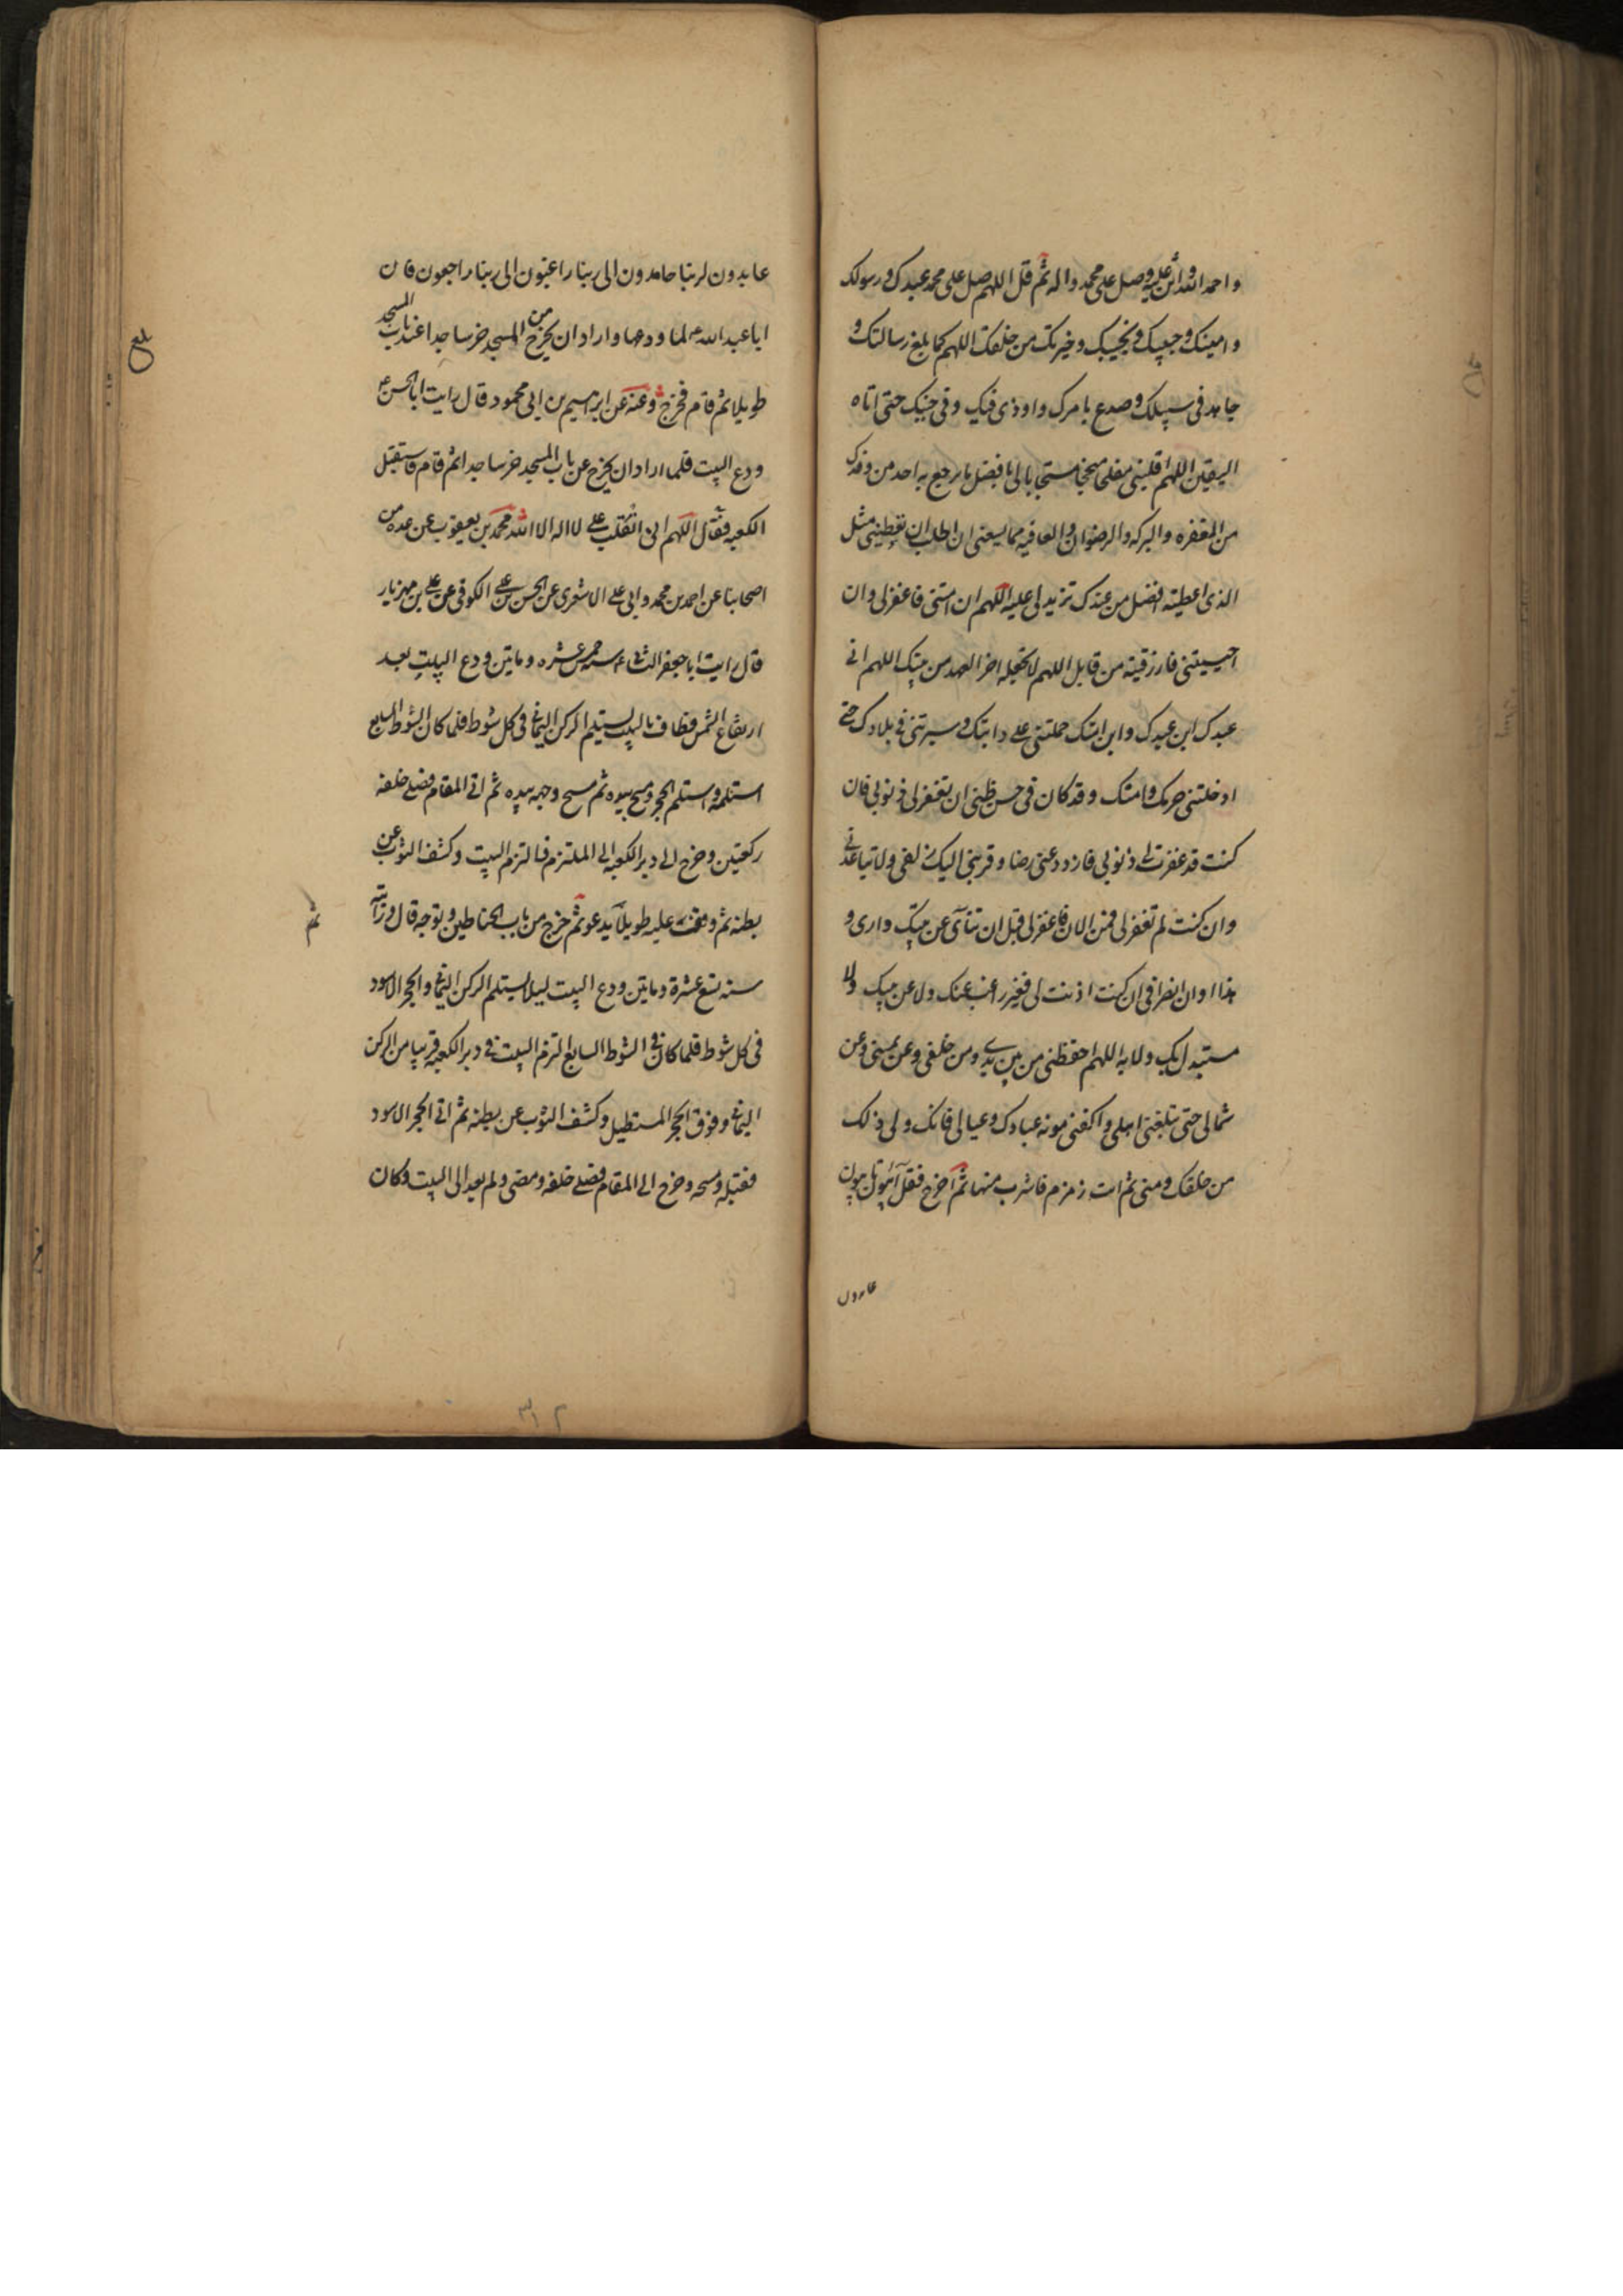 واحمد الله واثن عليه وصل على محمد واله ثم قل اللهم صل على محمد عبدك ورسولك
وامينك وحبيبك ونجيبك وخيرتك من خلقك اللهم كما بلغ رسالتك و
جاهد في سبيلك وصدع بامرك واوذي فيك وفي جنبك حتى اتاه
اليقين اللهم اقلبني مفلحا منجحا مستجابا لي بافضل ما يرجع به احد من وفدك
من المغفره والبركه والرضوان والعافيه مما يسعني ان اطلب ان تعطيني مثل
الذي اعطيته افضل من عندك تزيدني عليه اللهم ان امتني فاغفر لي وان
احييتني فارزقنيه من قابل اللهم لا تجعله اخر العهد من بيتك اللهم اني
عبدك ابن عبدك وابن امتك حملتني على دابتك وسيرتني في بلادك حتى
ادخلتني حرمك وامنك وقد كان في حسن ظني ان تغفر لي ذنوبي فان
كنت قد غفرت لي ذنوبي فازدد عني رضا وقربني اليك زلفى ولا تباعدني
وان كنت لم تغفر لي فمن الان فاغفر لي قبل ان تنآى عن بيتك داري و
هذا اوان انصرافي ان كنت اذنت لي فغير راغب عنك ولا عن بيتك ولا
مستبدل بك ولا به اللهم احفظني من بين يدي ومن خلفي وعن يميني وعن
شمالي حتى تبلغني اهلي واكفني مونه عبادك وعيالي فانك ولي ذلك
من خلقك ومني ثم ائت زمزم فاشرب منها ثم اخرج فقل آئبون تائبون
عابدون
عابدون لربنا حامدون الى ربنا راغبون الى ربنا راجعون فان
ابا عبد الله ع لما ودعها واراد ان يخرج من المسجد خر ساجدا عند باب المسجد
طويلا ثم قام فخرج وعنه عن ابراهيم بن ابي محمود قال رايت ابا الحسن ع
ودع البيت فلما اراد ان يخرج عن باب المسجد خر ساجدا ثم قام فاستقبل
الكعبه فقال اللهم اني انقلب على لا اله الا الله محمد بن يعقوب عن عده من
اصحابنا عن احمد بن محمد وابي علي الاشعري عن الحسن بن علي الكوفي عن علي بن مهزيار
قال رايت ابا جعفر الثاني ع سنه خمس عشره وماتين ودع البيت بعد
ارتفاع الشمس فطاف بالبيت يستلم الركن اليماني في كل شوط فلما كان الشوط السابع
استلمه واستلم الحجر ومسح بيده ثم مسح وجهه بيده ثم اتى المقام فصلى خلفه
ركعتين وخرج الى دبر الكعبه الى الملتزم فالتزم البيت وكشف الثوب عن
بطنه ثم وقف عليه طويلا يدعو ثم خرج من باب الحناطين وتوجه قال ورايته
ثم
سنه تسع عشرة وماتين ودع البيت ليلا يستلم الركن اليماني والحجر الاسود
في كل شوط فلما كان في الشوط السابع التزم البيت في دبر الكعبه قريبا من الركن
اليماني وفوق الحجر المستطيل وكشف الثوب عن بطنه ثم اتى الحجر الاسود
فقبله ومسحه وخرج الى المقام فصلى خلفه ومضى ولم يعد الى البيت وكان